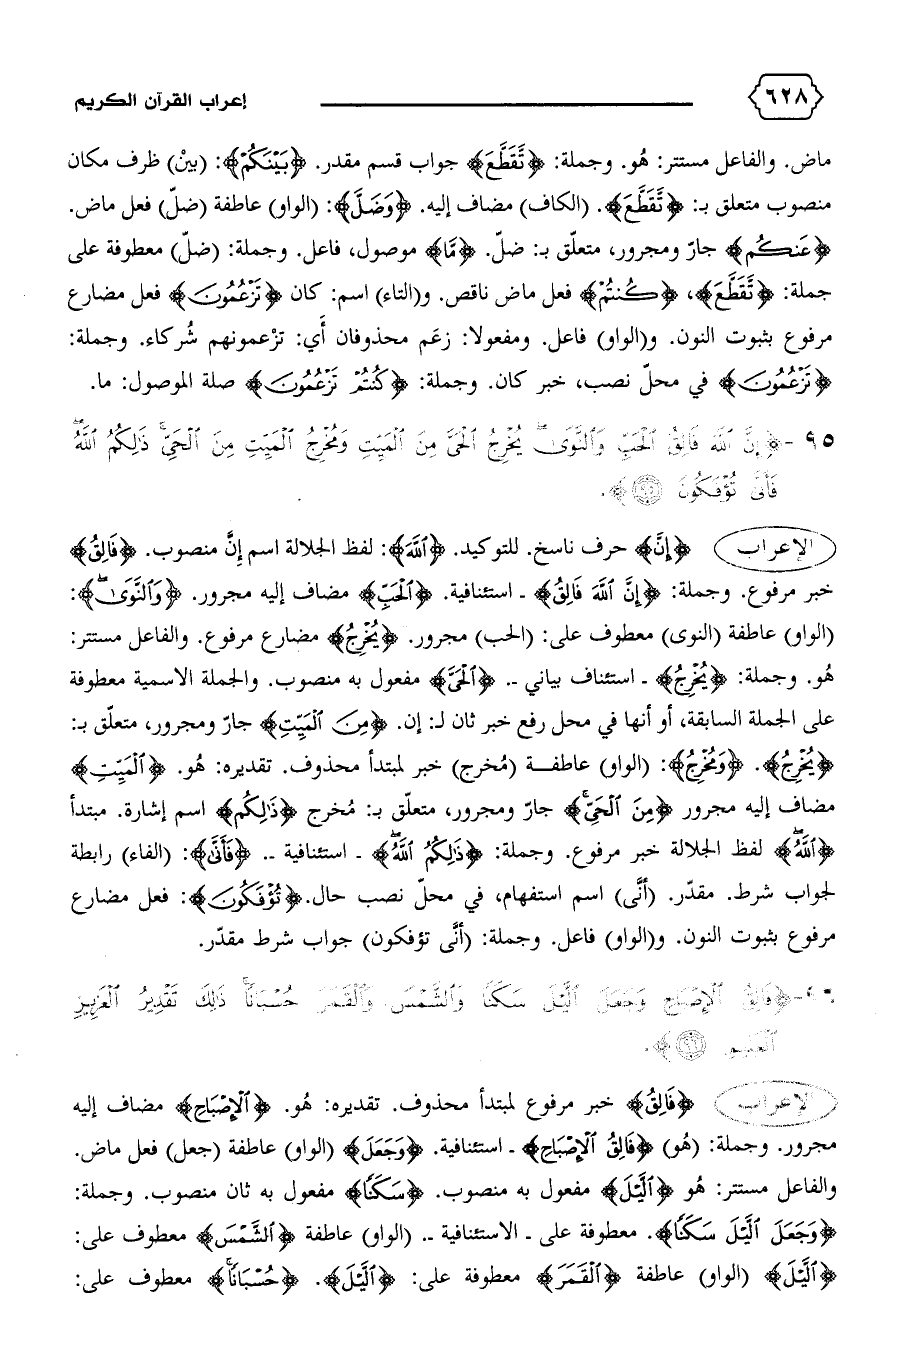 ٦٢٨ إعراب القرآن الكريم
ماض. والفاعل مستتر: هُو. وجملة: ﴿تَّقَطَّعَ﴾ جواب قسم مقدر. ﴿بَيْنَكُمْ﴾: (بينْ) ظرف مكان
منصوب متعلق بـ: ﴿تَّقَطَّعَ﴾. (الكاف) مضاف إليه. ﴿وَضَلَّ﴾: (الواو) عاطفة (ضلّ) فعل ماض.
﴿عَنكُم﴾ جارّ ومجرور، متعلّق بـ: ضلّ. ﴿مَّا﴾ موصول، فاعل. وجملة: (ضلّ) معطوفة على
جملة: ﴿تَّقَطَّعَ﴾، ﴿كُنتُمْ﴾ فعل ماض ناقص. و(التاء) اسم: كان ﴿تَزْعُمُونَ﴾ فعل مضارع
مرفوع بثبوت النون. و(الواو) فاعل. ومفعولا: زعَم محذوفان أَي: تزْعمونهم شُركاء. وجملة:
﴿تَزْعُمُونَ﴾ في محلّ نصب، خبر كان. وجملة: ﴿كُنتُمْ تَزْعُمُونَ﴾ صلة الموصول: ما.
٩٥ -﴿إِنَّ ٱللَّهَ فَالِقُ ٱلْحَبِّ وَٱلنَّوَىٰۖ يُخْرِجُ ٱلْحَىَّ مِنَ ٱلْمَيِّتِ وَمُخْرِجُ ٱلْمَيِّتِ مِنَ ٱلْحَىِّۚ ذَٰلِكُمُ ٱللَّهُۖ
فَأَنَّىٰ تُؤْفَكُونَ ٩٥﴾.
الإعراب ﴿إِنَّ﴾ حرف ناسخ. للتوكيد. ﴿ٱللَّهَ﴾: لفظ الجلالة اسم إِنَّ منصوب. ﴿فَالِقُ﴾
خبر مرفوع. وجملة: ﴿إِنَّ ٱللَّهَ فَالِقُ﴾ ـ استئنافية. ﴿ٱلْحَبِّ﴾ مضاف إليه مجرور. ﴿وَٱلنَّوَىٰۖ﴾:
(الواو) عاطفة (النوى) معطوف على: (الحب) مجرور. ﴿يُخْرِجُ﴾ مضارع مرفوع. والفاعل مستتر:
هُو. وجملة: ﴿يُخْرِجُ﴾ ـ استئناف بياني ـ. ﴿ٱلْحَىَّ﴾ مفعول به منصوب. والجملة الاسمية معطوفة
على الجملة السابقة، أو أنها في محل رفع خبر ثان لـ: إن. ﴿مِنَ ٱلْمَيِّتِ﴾ جارّ ومجرور، متعلّق بـ:
﴿يُخْرِجُ﴾. ﴿وَمُخْرِجُ﴾: (الواو) عاطفة (مُخرج) خبر لمبتدأ محذوف. تقديره: هُو. ﴿ٱلْمَيِّتِ﴾
مضاف إليه مجرور ﴿مِنَ ٱلْحَىِّۚ﴾ جارّ ومجرور، متعلّق بـ: مُخرج ﴿ذَٰلِكُم﴾ اسم إشارة. مبتدأ
﴿ٱللَّهُۖ﴾ لفظ الجلالة خبر مرفوع. وجملة: ﴿ذَٰلِكُمُ ٱللَّهُۖ﴾ ـ استئنافية ـ. ﴿فَأَنَّىٰ﴾: (الفاء) رابطة
لجواب شرط. مقدّر. (أنَّى) اسم استفهام، في محلّ نصب حال.﴿تُؤْفَكُونَ﴾: فعل مضارع
مرفوع بثبوت النون. و(الواو) فاعل. وجملة: (أنَّى تؤفكون) جواب شرط مقدّر.
٩٦-﴿فَالِقُ ٱلْإِصْبَاحِ وَجَعَلَ ٱلَّيْلَ سَكَنًا وَٱلشَّمْسَ وَٱلْقَمَرَ حُسْبَانًاۚ ذَٰلِكَ تَقْدِيرُ ٱلْعَزِيزِ
ٱلْعَلِيمِ ٩٦﴾.
الإعراب ﴿فَالِقُ﴾ خبر مرفوع لمبتدأ محذوف. تقديره: هُو. ﴿ٱلْإِصْبَاحِ﴾ مضاف إليه
مجرور. وجملة: (هُو) ﴿فَالِقُ ٱلْإِصْبَاحِ﴾ ـ استئنافية. ﴿وَجَعَلَ﴾ (الواو) عاطفة (جعل) فعل ماض.
والفاعل مستتر: هُو ﴿ٱلَّيْلَ﴾ مفعول به منصوب. ﴿سَكَنًا﴾ مفعول به ثان منصوب. وجملة:
﴿وَجَعَلَ ٱلَّيْلَ سَكَنًا﴾. معطوفة على ـ الاستئنافية ـ. (الواو) عاطفة ﴿ٱلشَّمْسَ﴾ معطوف على:
﴿ٱلَّيْلَ﴾ (الواو) عاطفة ﴿ٱلْقَمَرَ﴾ معطوفة على: ﴿ٱلَّيْلَ﴾. ﴿حُسْبَانًاۚ﴾ معطوف على: